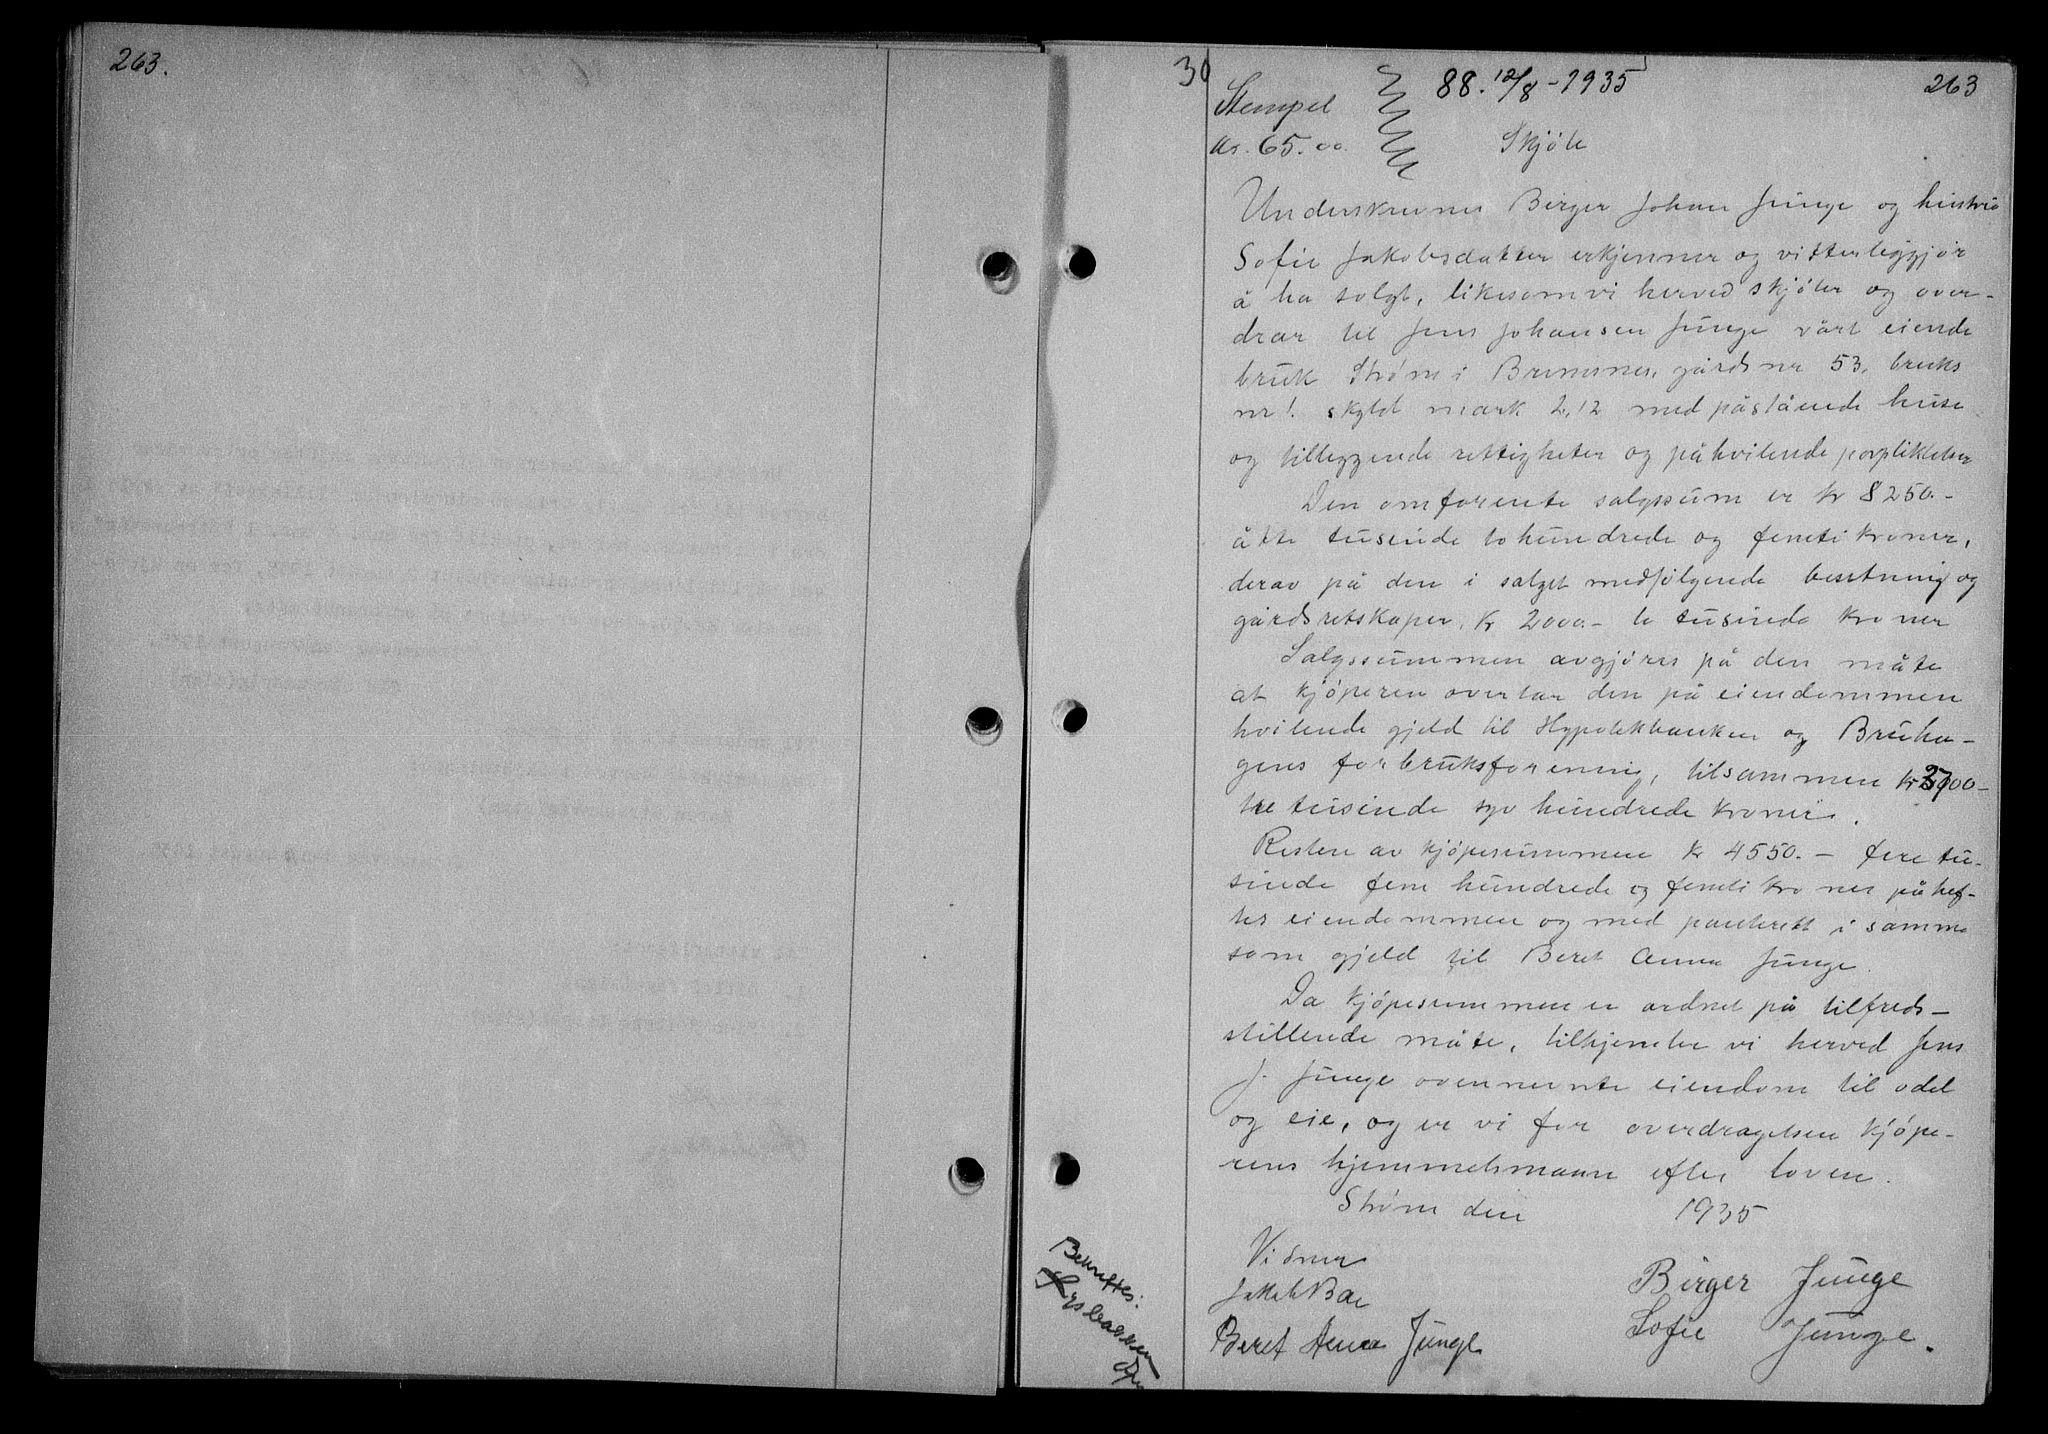 263.
30
88. 12/8-1935
263
Stempel
kr. 65.00
Skjöte
Underskrevne Birger Johan Junge og hustru
Sofie Jakobsdatter erkjenner og vitterliggjör
å ha solgt, likesom vi herved skjöter og over-
drar til Jens Johansen Junge vårt eiende
bruk Strøm i Bremsnes, gårds nr 53, bruks
nr 1. skyld mark 2,12 med påstående huse
og tilleggende rettigheter og påhvilende forpliktelser
Den omforente salgssum er kr 8250.-
åtte tusinde tohundrede og femti kroner,
derav på den i salget medfölgende besetning og
gårdsretskaper, kr 2000.- to tusinde kroner
Salgssummen avgjöres på den måte
at kjöperen overtar den på eiendommen
hvilende gjeld til Hypotekbanken og Bruha-
gens forbruksforening, tilsammen kr 3700-
tre tusinde syv hundrede kroner.
Resten av kjöpesummen kr 4550.- fire tu-
sinde fem hundrede og femti kroner påhef-
tes eiendommen og med panterett i samme
som gjeld til Beret Anna Junge.
Da kjöpesummen er ordnet på tilfreds-
stillende måte, tilhjemler vi herved Jens
J. Junge ovennevnte eiendom til odel
og eie, og er vi for overdragelsen kjöpe-
rens hjemmelsmann efter loven.
Strøm den 1935
Vidner
Jakob Bae
Beret Anna Junge
Birger Junge
Sofie Junge.
Bekreftes: